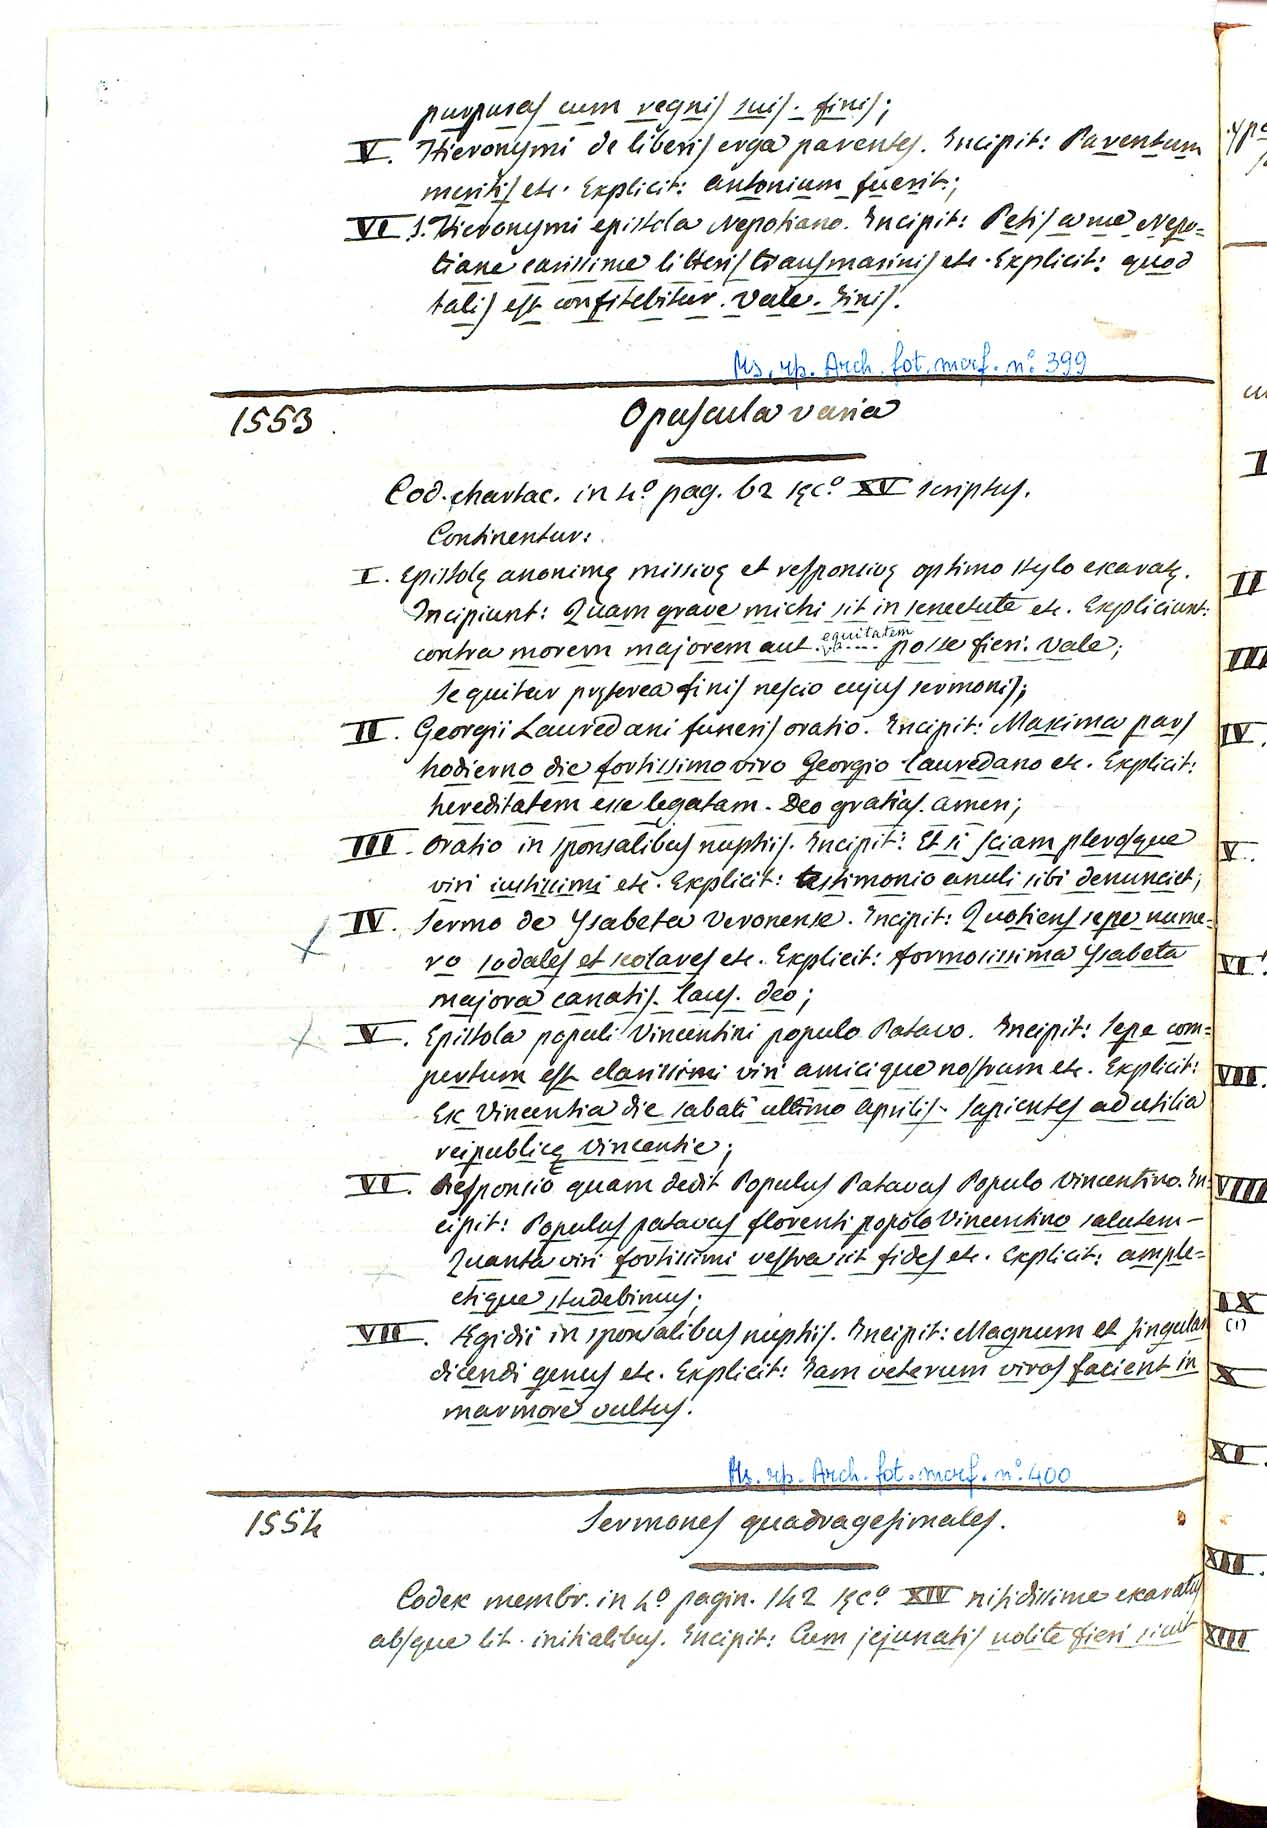 purpuras cum regnis suis. finis;
V. Hieronymi de liberis erga parentes. Incipit: Parentum
meritis etc. Explicit: antonium fuerit;
VI S. Hieronymi epistola Nepotiano. Incipit: Petis a me Nepo=
tiane carissime litteris transmarinis etc. Explicit: quod
talis est confitebitur. Vale. Finis.
Ms. rp. Arch. fot. morf. n.º 399
1553 Opuscula varia
Cod. chartac. in 4º pag. 62 sęcº XV scriptus.
Continentur:
I. Epistolę anonimę missivę et responsivę optimo stylo exaratę.
Incipiunt: Quam grave michi sit in senectute etc. Expliciunt:
equitatem
contra morem majorem aut va.... posse fieri. Vale;
Sequitur pręterea finis nescio cujus sermonis;
II. Georgii Lauredani funeris oratio. Incipit: Maxima pars
hodierno die fortissimo viro Georgio lauredano etc. Explicit:
hereditatem esse legatam. Deo gratias. amen;
III. Oratio in sponsalibus nuptiis. Incipit: Et si sciam plerosque
viri iustissimi etc. Explicit: testimonio anuli sibi denunciet;
IV. Sermo de Ysabeta Veronense. Incipit: Quotiens sepe nume=
ro sodales et scolares etc. Explicit: formosissima Ysabeta
majora canatis. laus. deo;
V. Epistola populi Vincentini populo Patavo. Incipit: Sepe com=
pertum est clarissimi viri amicique nostram etc. Explicit:
Ex Vincentia die sabati ultimo aprilis. Sapientes ad utilia
reipublicę Vincentie;
VI. Responsio quam dedit Populus Patavus Populo Vincentino. In=
cipit: Populus patavus florenti popolo Vincentino salutem-
Quanta viri fortissimi vestra sit fides etc. Explicit: ample=
ctique studebimus;
VII. Egidii in sponsalibus nuptiis. Incipit: Magnum et singulari
dicendi genus etc. Explicit: Iam veterum vivos facient in
marmore vultus.
Ms. rp. Arch. fot. morf. n.º 400
1554 Sermones quadragesimales.
Codex membr. in 4º pagin. 142 sęcº XIV nitidissime exaratus
absque lit. initialibus. Incipit: Cum jejunatis nolite fieri sicut
I
II
III
IV.
V.
VI.
VII.
VIII
IX
(1)
X
XI.
XII.
XIII